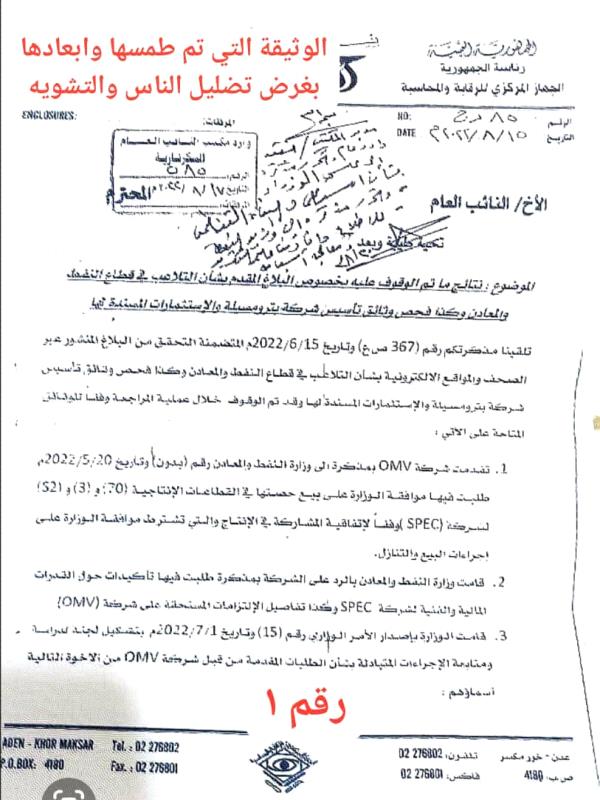 الوثيقة التي تم طمسها وابعادها
بغرض تضليل الناس والتشويه
الجمهورية اليمنية
رئاسة الجمهورية
الجهاز المركزي للرقابة والمحاسبة
ENCLOSURES:
المرفقات:
NO:
الرقم
DATE
٢٠٢٢/٨/١٥م
التاريخ
وارد مكتب النائب العام
السكرتارية
الرقم: ٥٨٥
التاريخ: ٢٠٢٢/٨/١٧م
الأخ/ النائب العام
المحترم
تحية طيبة وبعد
الموضوع : نتائج ما تم الوقوف عليه بخصوص البلاغ المقدم بشأن التلاعب في قطاع النفط
والمعادن وكذا فحص وثائق تأسيس شركة بترومسيلة والإستثمارات المسندة لها
تلقينا مذكرتكم رقم (367 ص ع) وتاريخ 2022/6/15م المتضمنة التحقق من البلاغ المنشور عبر
الصحف والمواقع الالكترونية بشأن التلاعب في قطاع النفط والمعادن وكذا فحص وثائق تأسيس
شركة بترومسيلة والإستثمارات المسندة لها وقد تم الوقوف خلال عملية المراجعة وفقاً للوثائق
المتاحة على الآتي :
1. تقدمت شركة OMV بمذكرة الى وزارة النفط والمعادن رقم (بدون) وتاريخ 2022/5/20م
طلبت فيها موافقة الوزارة على بيع حصتها في القطاعات الإنتاجية (70) و (3) و (S2)
لشركة (SPEC) وفقاً لإتفاقية المشاركة في الإنتاج والتي تشترط موافقة الوزارة على
إجراءات البيع والتنازل.
2. قامت وزارة النفط والمعادن بالرد على الشركة بمذكرة طلبت فيها تأكيدات حول القدرات
المالية والفنية لشركة SPEC وكذا تفاصيل الإلتزامات المستحقة على شركة (OMV)
3. قامت الوزارة بإصدار الأمر الوزاري رقم (15) وتاريخ 2022/7/1م بتشكيل لجنة لدراسة
ومتابعة الإجراءات المتبادلة بشأن الطلبات المقدمة من قبل شركة OMV من الاخوة التالية
أسماؤهم :
رقم ١
ADEN - KHOR MAKSAR
Tel. : 02 276802
P.O.BOX: 4180
Fax. : 02 276801
عدن - خور مكسر
تلفون: 02 276802
ص.ب: 4180
فاكس: 02 276801